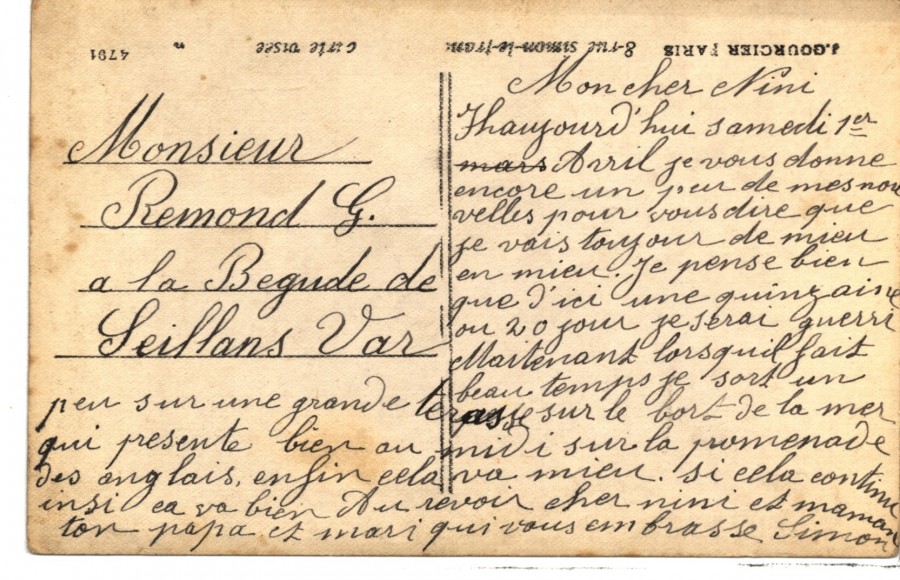 J. GOURCIER PARIS 8-rue Simon-le-franc carte visée n 4791
Monsieur
Remond G.
a la Begude de
Seillans Var
Mon cher Nini
aujourd'hui samedi 1er
mars Avril je vous donne
encore un peu de mes nou
velles pour vous dire que
je vais toujour de mieu
en mieu. Je pense bien
que d'ici une quinzaine
ou 20 jour je serai guerri
Maitenant lorsquil fait
beau temps je sort un
peu sur une grande terasse sur le bort de la mer
qui presente bien au midi sur la promenade
des anglais. enfin cela va mieu. si cela continu
insi ca va bien Au revoir cher nini et maman
ton papa et mari qui vous embrasse Simon